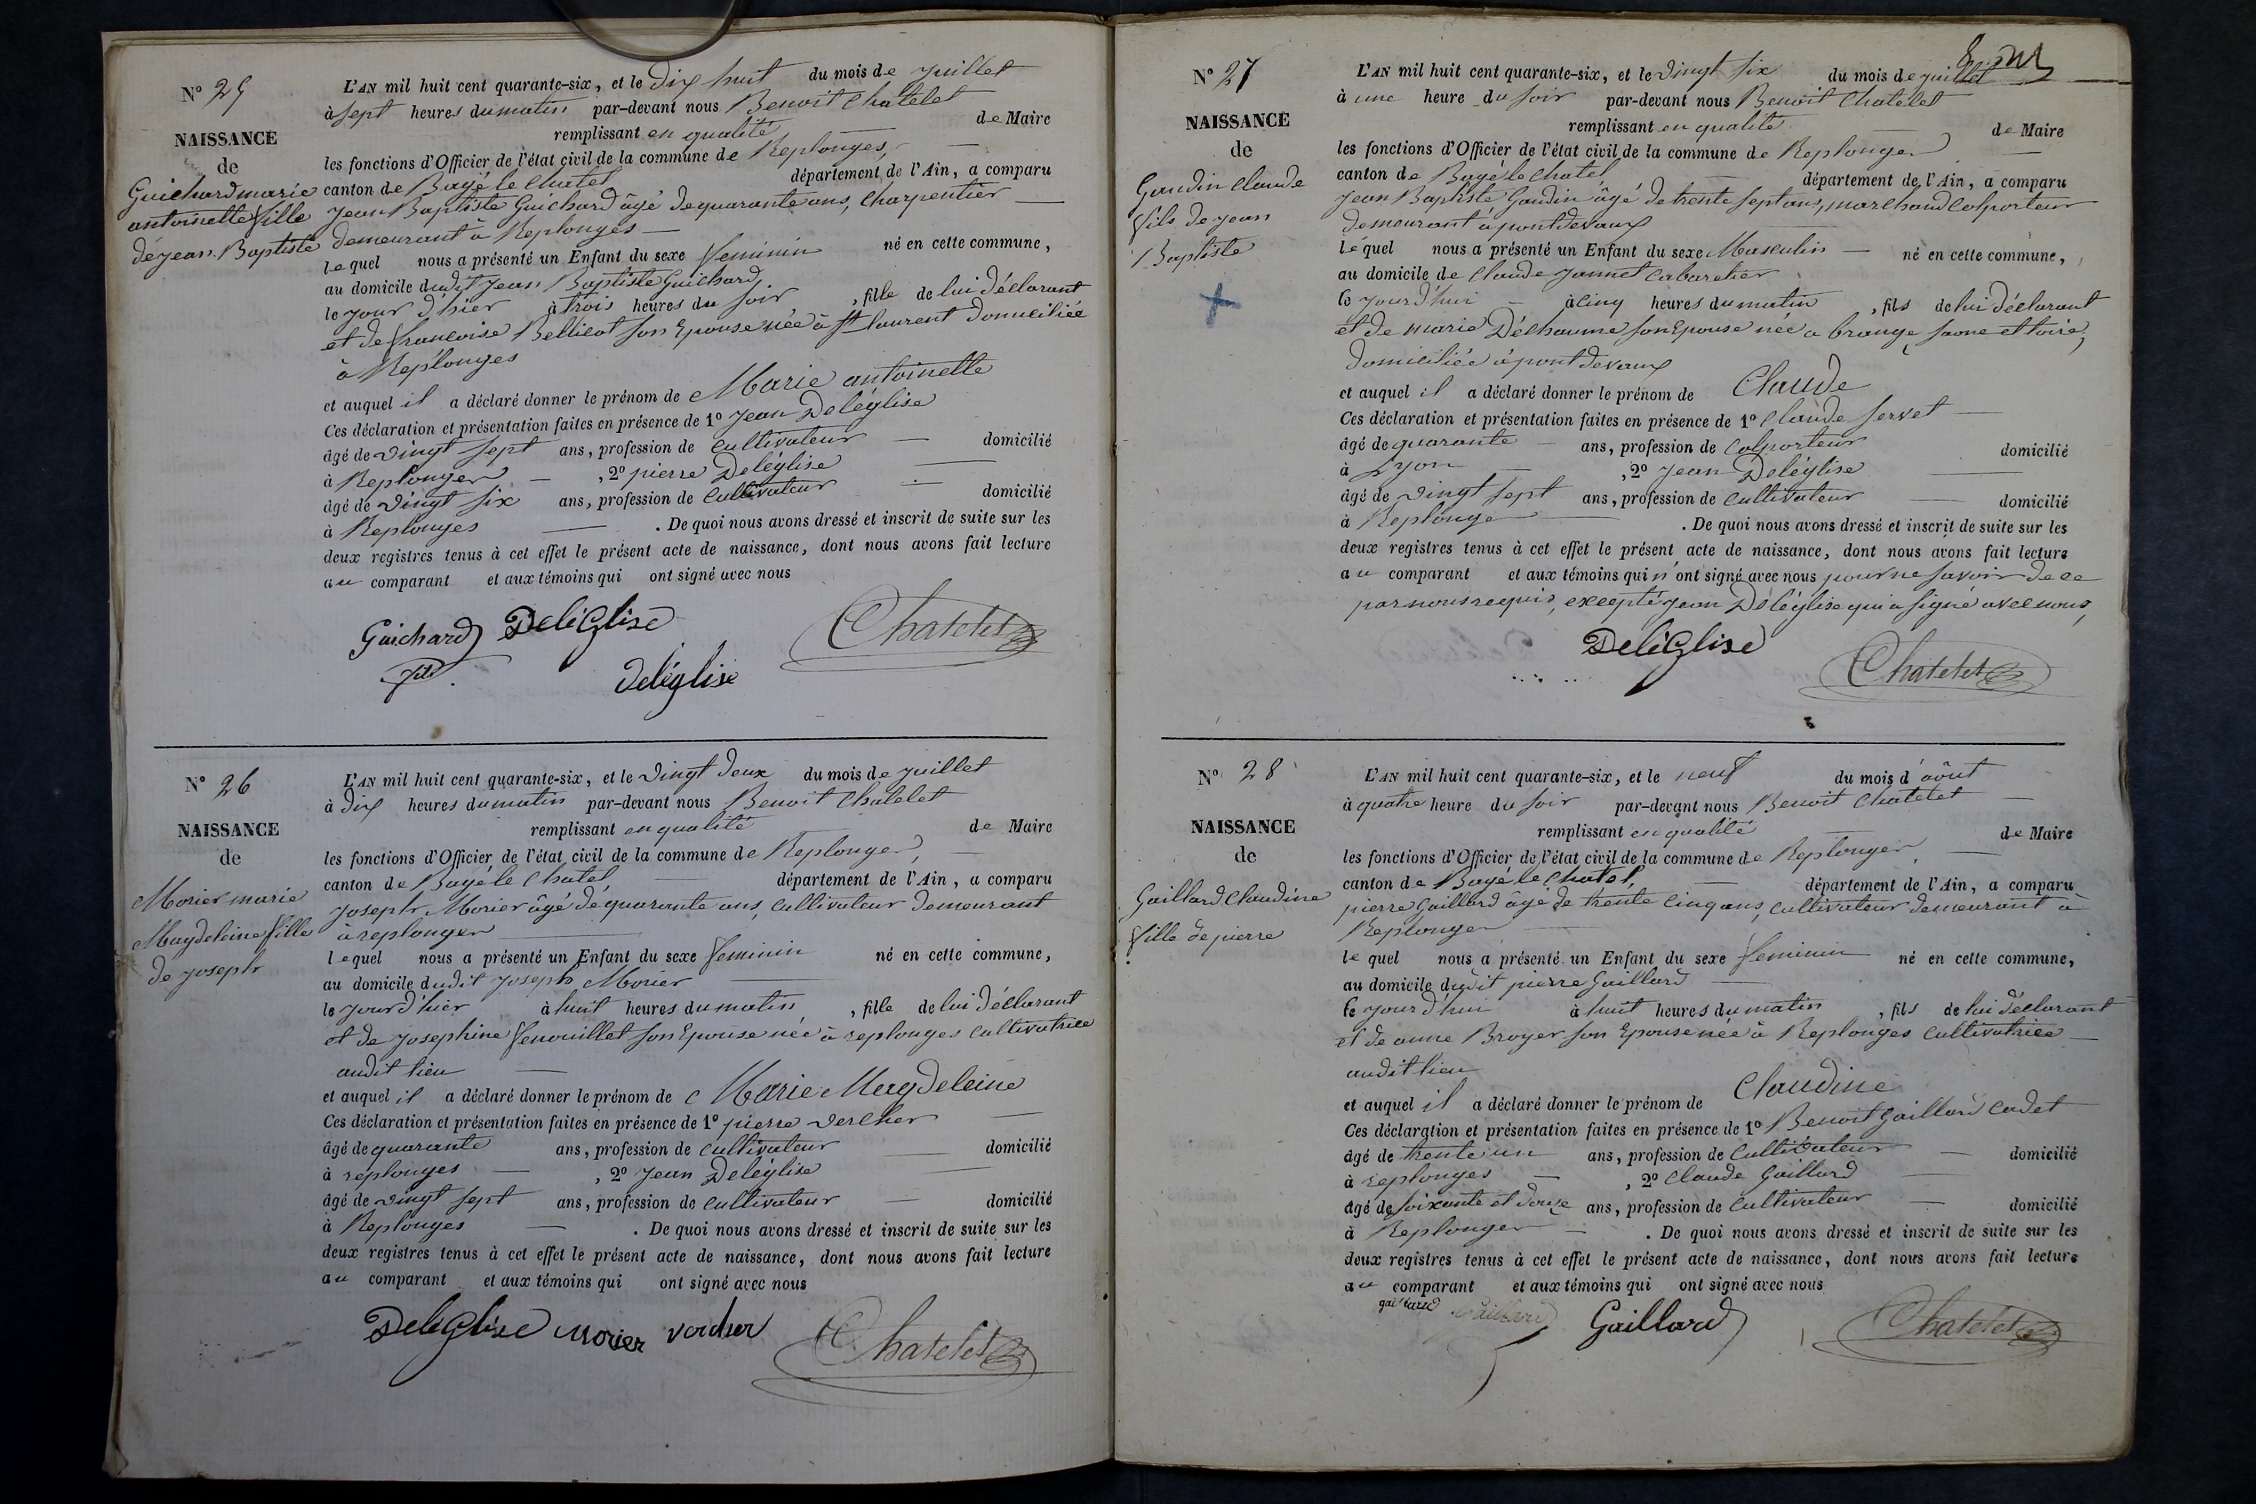 N° 25
NAISSANCE
de
Guichard marie
antoinette fille
de jean Baptiste
L'AN mil huit cent quarante-six, et le dix huit du mois de juillet
à sept heures du matin par-devant nous Benoit Chatelet
remplissant en qualité de Maire
les fonctions d'Officier de l'état civil de la commune de Replonges,
canton de Bagé le Chatel département de l'Ain, a comparu
Jean Baptiste Guichard âgé de quarante ans, Charpentier
demeurant à Replonges
lequel nous a présenté un Enfant du sexe feminin né en cette commune,
au domicile dudit Jean Baptiste Guichard
le jour d'hier à trois heures du soir , fille de lui déclarant
et de francoise Bellicot son Epouse née à St laurent domiciliée
à Replonges
et auquel il a déclaré donner le prénom de Marie antoinette
Ces déclaration et présentation faites en présence de 1° Jean Deléglise
âgé de vingt sept ans, profession de cultivateur domicilié
à Replonges , 2° pierre Deléglise
âgé de vingt six ans, profession de Cultivateur domicilié
à Replonges . De quoi nous avons dressé et inscrit de suite sur les
deux registres tenus à cet effet le présent acte de naissance, dont nous avons fait lecture
au comparant et aux témoins qui ont signé avec nous
Guichard DeliGlise Chatelet
fils deléglise
N° 26
NAISSANCE
de
Morier marie
Magdeleine fille
de joseph
L'AN mil huit cent quarante-six, et le vingt deux du mois de juillet
à dix heures du matin par-devant nous Benoit Chatelet
remplissant en qualité de Maire
les fonctions d'Officier de l'état civil de la commune de Replonges,
canton de Bagé le Chatel département de l'Ain, a comparu
Joseph Morier âgé de quarante ans, Cultivateur demeurant
à replonges
lequel nous a présenté un Enfant du sexe feminin né en cette commune,
au domicile dudit Joseph Morier
le jour d'hier à huit heures du matin , fille de lui déclarant
et de Josephine fenouillet son Epouse née à replonges cultivatrice
audit lieu
et auquel il a déclaré donner le prénom de Marie Magdeleine
Ces déclaration et présentation faites en présence de 1° pierre vercher
âgé de quarante ans, profession de cultivateur domicilié
à replonges , 2° Jean Deléglise
âgé de vingt sept ans, profession de cultivateur domicilié
à Replonges . De quoi nous avons dressé et inscrit de suite sur les
deux registres tenus à cet effet le présent acte de naissance, dont nous avons fait lecture
au comparant et aux témoins qui ont signé avec nous
DeliGlise Morier vercher Chatelet
N° 27
NAISSANCE
de
Gaudin Claude
fils de jean
Baptiste
L'AN mil huit cent quarante-six, et le vingt six du mois de juillet
à une heure du soir par-devant nous Benoit Chatelet
remplissant en qualité de Maire
les fonctions d'Officier de l'état civil de la commune de Replonges
canton de Bagé le Chatel département de l'Ain, a comparu
Jean Baptiste Gaudin âgé de trente sept ans, marchand Colporteur
demeurant à pontdevaux
lequel nous a présenté un Enfant du sexe Masculin né en cette commune,
au domicile de Claude Jannet Cabaretier
le jour d'hui à cinq heures du matin , fils de lui déclarant
et de marie Déchaume son Epouse née a brange saone et loire,
domiciliée à pont devaux
et auquel il a déclaré donner le prénom de Claude
Ces déclaration et présentation faites en présence de 1° Claude servet
âgé de quarante ans, profession de Colporteur domicilié
à Lyon , 2° Jean Deléglise
âgé de vingt sept ans, profession de cultivateur domicilié
à Replonge . De quoi nous avons dressé et inscrit de suite sur les
deux registres tenus à cet effet le présent acte de naissance, dont nous avons fait lecture
au comparant et aux témoins qui n'ont signé avec nous pour ne savoir de ce
par nous requis, excepté jean Deléglise qui a signé avec nous,
DeliGlise Chatelet
N° 28
NAISSANCE
de
Gaillard Claudine
fille de pierre
L'AN mil huit cent quarante-six, et le neuf du mois d'aôut
à quatre heure du soir par-devant nous Benoit Chatelet
remplissant en qualité de Maire
les fonctions d'Officier de l'état civil de la commune de Replonges
canton de Bagé le Chatel, département de l'Ain, a comparu
pierre Gaillard âgé de trente cinq ans, Cultivateur demeurant à
Replonges
lequel nous a présenté un Enfant du sexe feminin né en cette commune,
au domicile dudit pierre Gaillard
le jour d'hui à huit heures du matin , fils de lui déclarant
et de anne Broyer son Epouse née à Replonges cultivatrice
audit lieu
et auquel il a déclaré donner le prénom de Claudine
Ces déclaration et présentation faites en présence de 1° Benoit Gaillard cadet
âgé de trente un ans, profession de Cultivateur domicilié
à replonges , 2° Claude Gaillard
âgé de soixante et douze ans, profession de cultivateur domicilié
à Replonges . De quoi nous avons dressé et inscrit de suite sur les
deux registres tenus à cet effet le présent acte de naissance, dont nous avons fait lecture
au comparant et aux témoins qui ont signé avec nous
gaillard Gaillard Gaillard Chatelet